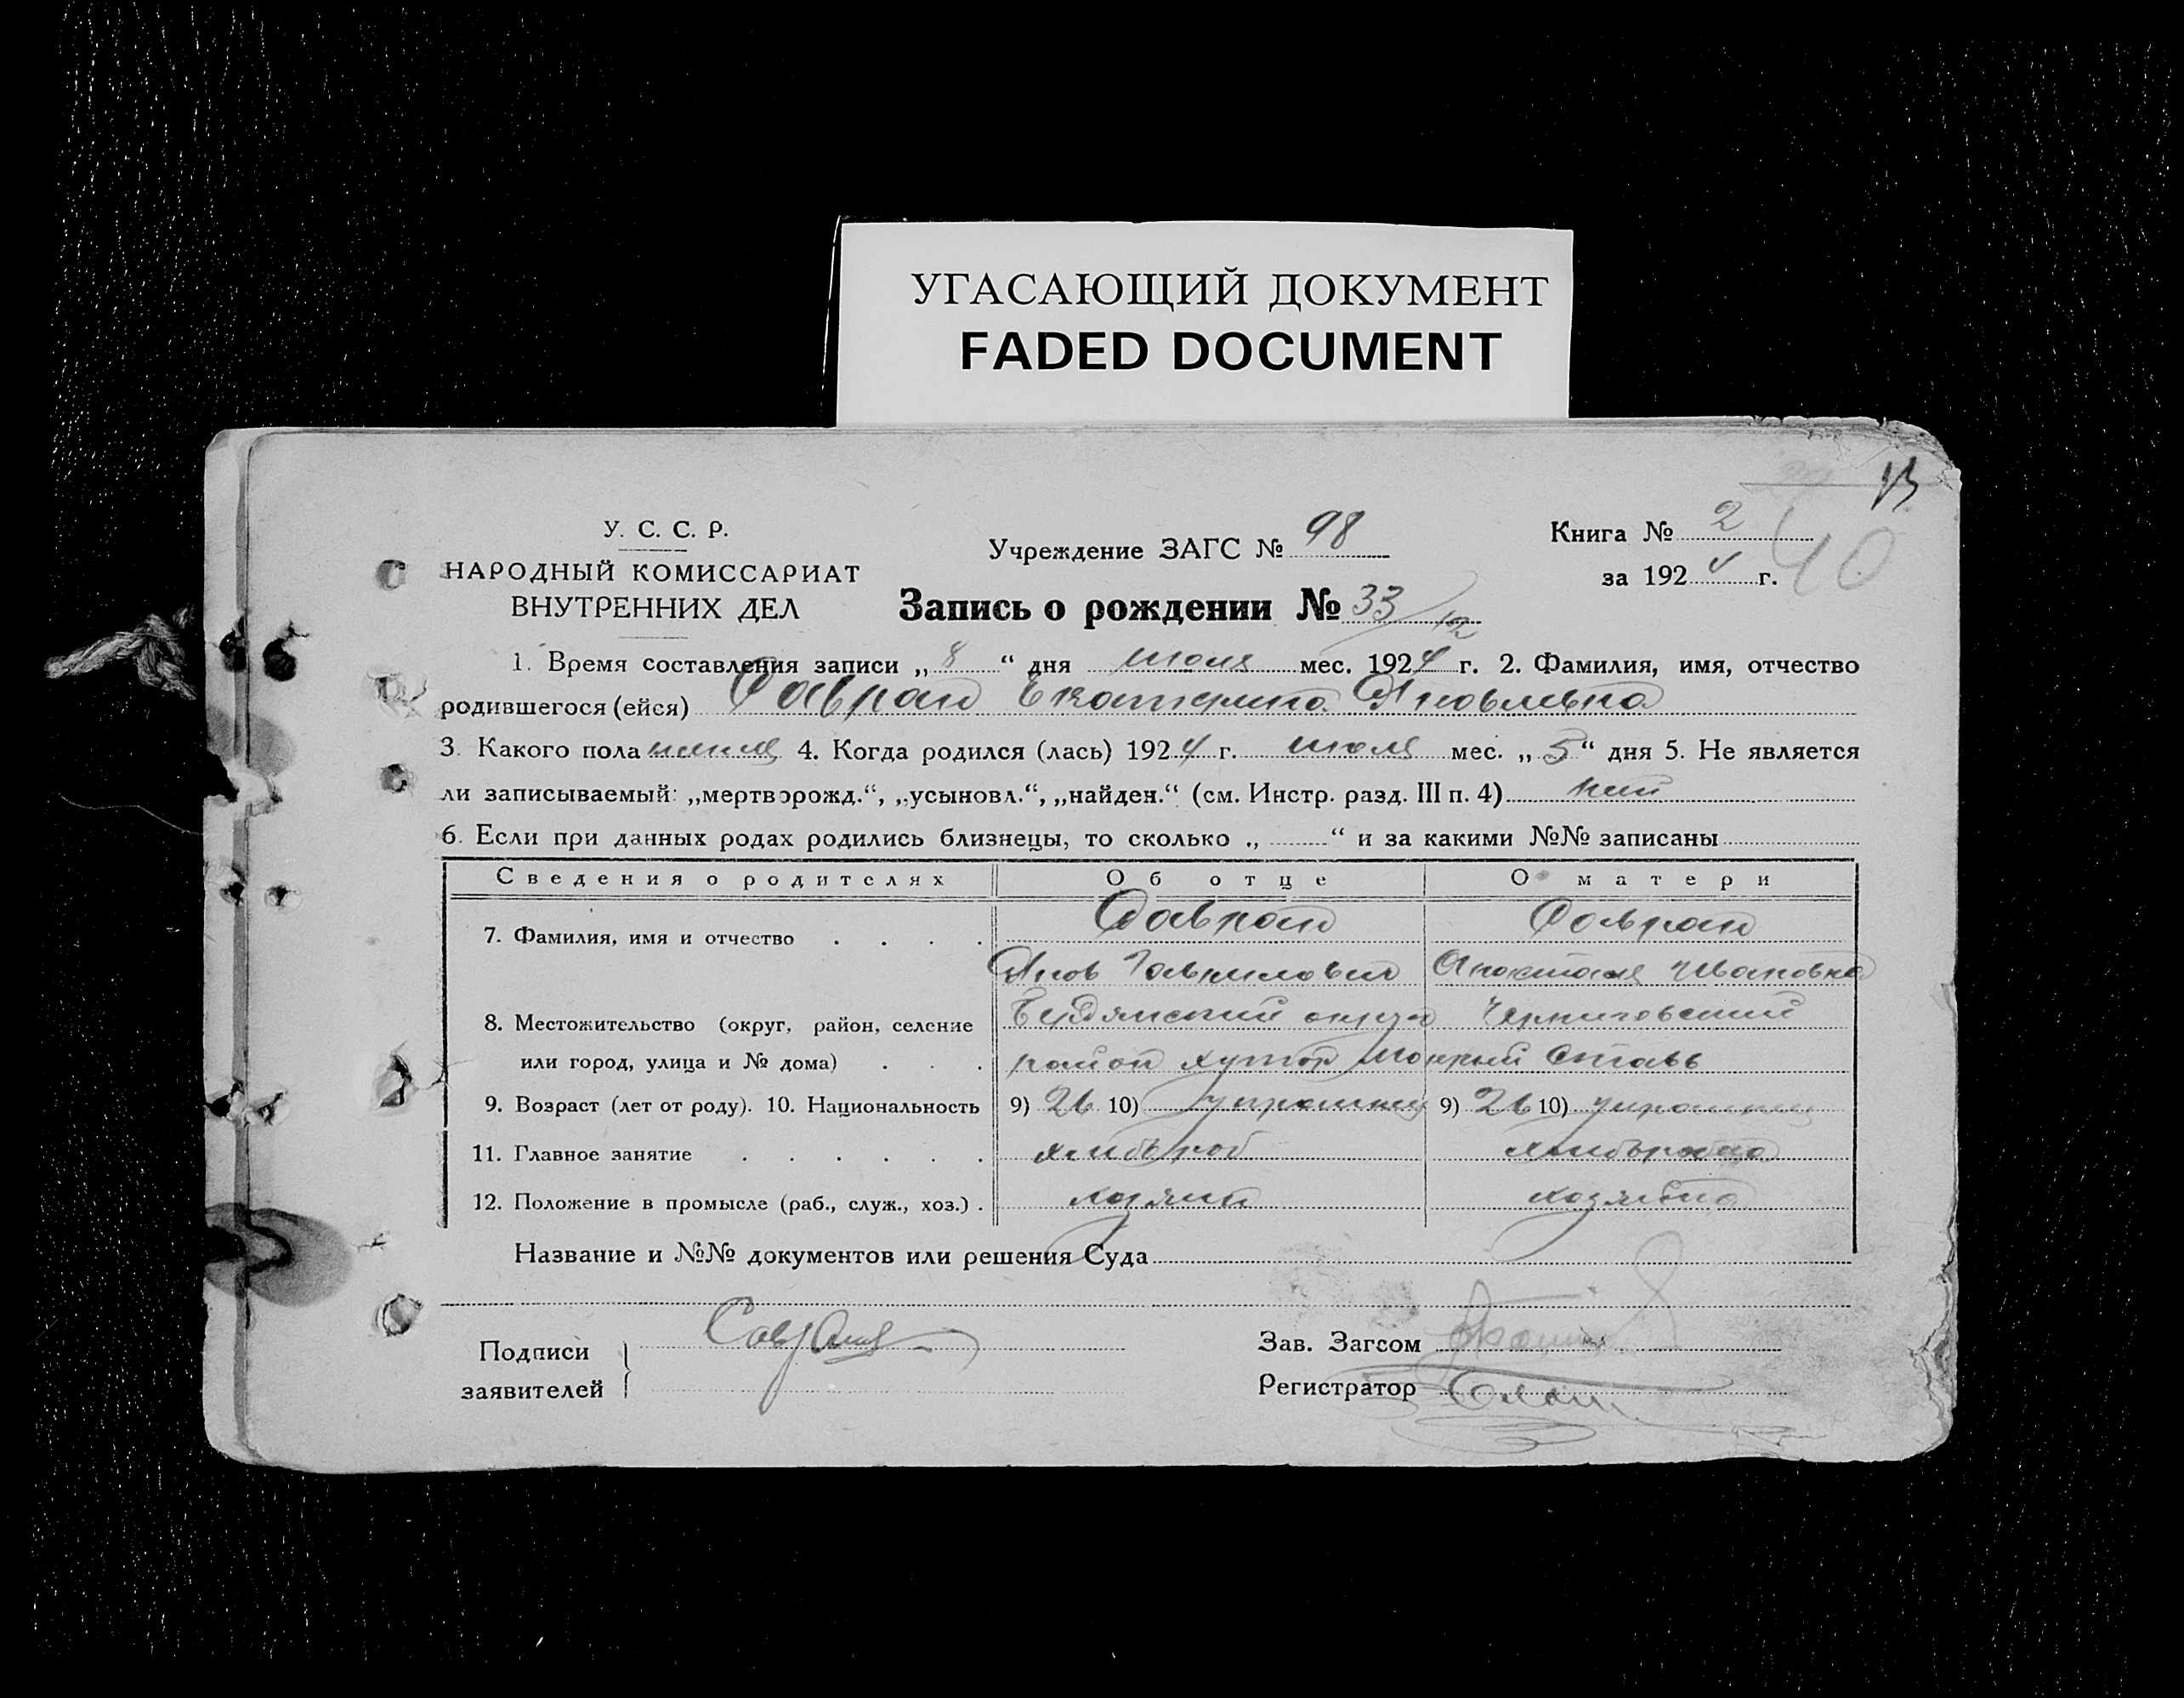 УГАСАЮЩИЙ ДОКУМЕНТ
FADED DOCUMENT
13
У. С. С. Р.
НАРОДНЫЙ КОМИССАРИАТ
ВНУТРЕННИХ ДЕЛ
Учреждение ЗАГС № 98
Книга № 2
за 1924 г.
40
Запись о рождении № 33/12
1. Время составления записи „8“ дня июля мес. 1924 г. 2. Фамилия, имя, отчество
родившегося (ейся) Савран Екатерина Яковлевна
3. Какого пола 4. Когда родился (лась) 1924 г. июля мес. „5“ дня 5. Не является
ли записываемый: „мертворожд.“, „усыновл.“, „найден.“ (см. Инстр. разд. III п. 4) нет
6. Если при данных родах родились близнецы, то сколько „ “ и за какими №№ записаны
Сведения о родителях Об отце О матери
7. Фамилия, имя и отчество . . . . Савран Савран
Яков Гаврилович Анастасия Ивановна
8. Местожительство (округ, район, селение Бердянский округ Черниговский
или город, улица и № дома) . . . район хутор Мокрый Ставь
9. Возраст (лет от роду). 10. Национальность 9) 26 10) украинец 9) 26 10)
11. Главное занятие . . . . . . хлибороб хлиборобка
12. Положение в промысле (раб., служ., хоз.) . хозяин хозяйка
Название и №№ документов или решения Суда
Подписи
заявителей
Зав. Загсом
Регистратор